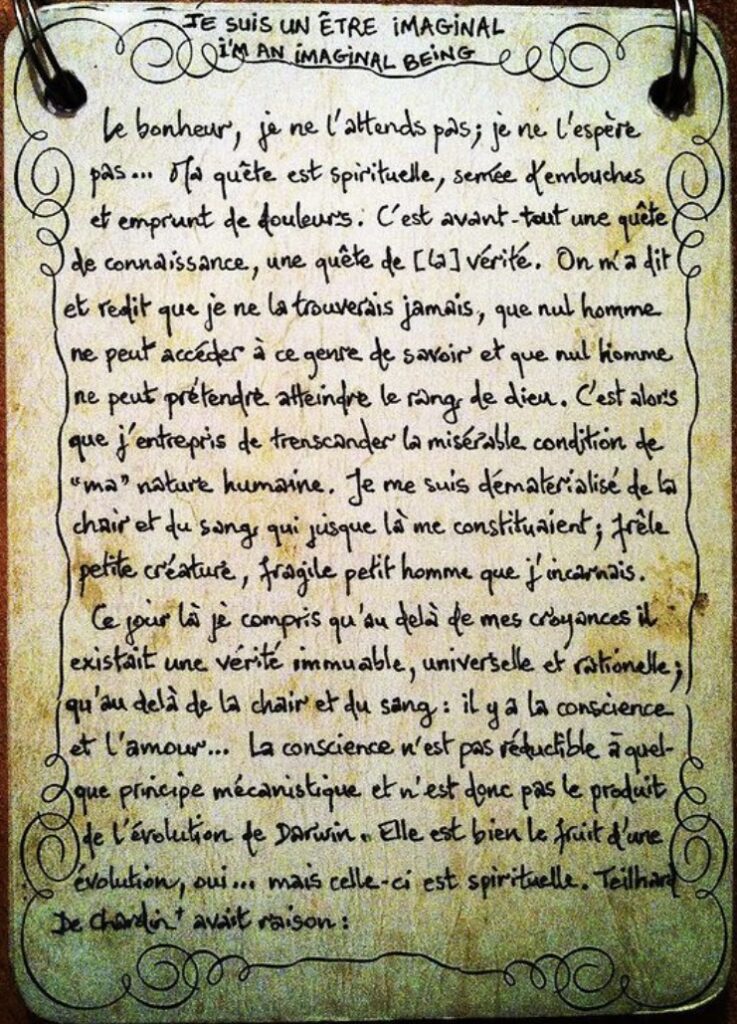 JE SUIS UN ÊTRE IMAGINAL
I'M AN IMAGINAL BEING
Le bonheur, je ne l'attends pas; je ne l'espère
pas... Ma quête est spirituelle, semée d'embuches
et emprunt de douleurs. C'est avant-tout une quête
de connaissance, une quête de [la] vérité. On m'a dit
et redit que je ne la trouverais jamais, que nul homme
ne peut accéder à ce genre de savoir et que nul homme
ne peut prétendre atteindre le rang de dieu. C'est alors
que j'entrepris de transcander la misérable condition de
"ma" nature humaine. Je me suis dématérialisé de la
chair et du sang qui jusque là me constituaient; frêle
petite créature, fragile petit homme que j'incarnais.
Ce jour là je compris qu'au delà de mes croyances il
existait une vérité immuable, universelle et rationelle;
qu'au delà de la chair et du sang: il y a la conscience
et l'amour... La conscience n'est pas réductible à quel-
que principe mécanistique et n'est donc pas le produit
de l'évolution de Darwin. Elle est bien le fruit d'une
évolution, oui... mais celle-ci est spirituelle. Teilhard
De Chardin+ avait raison: